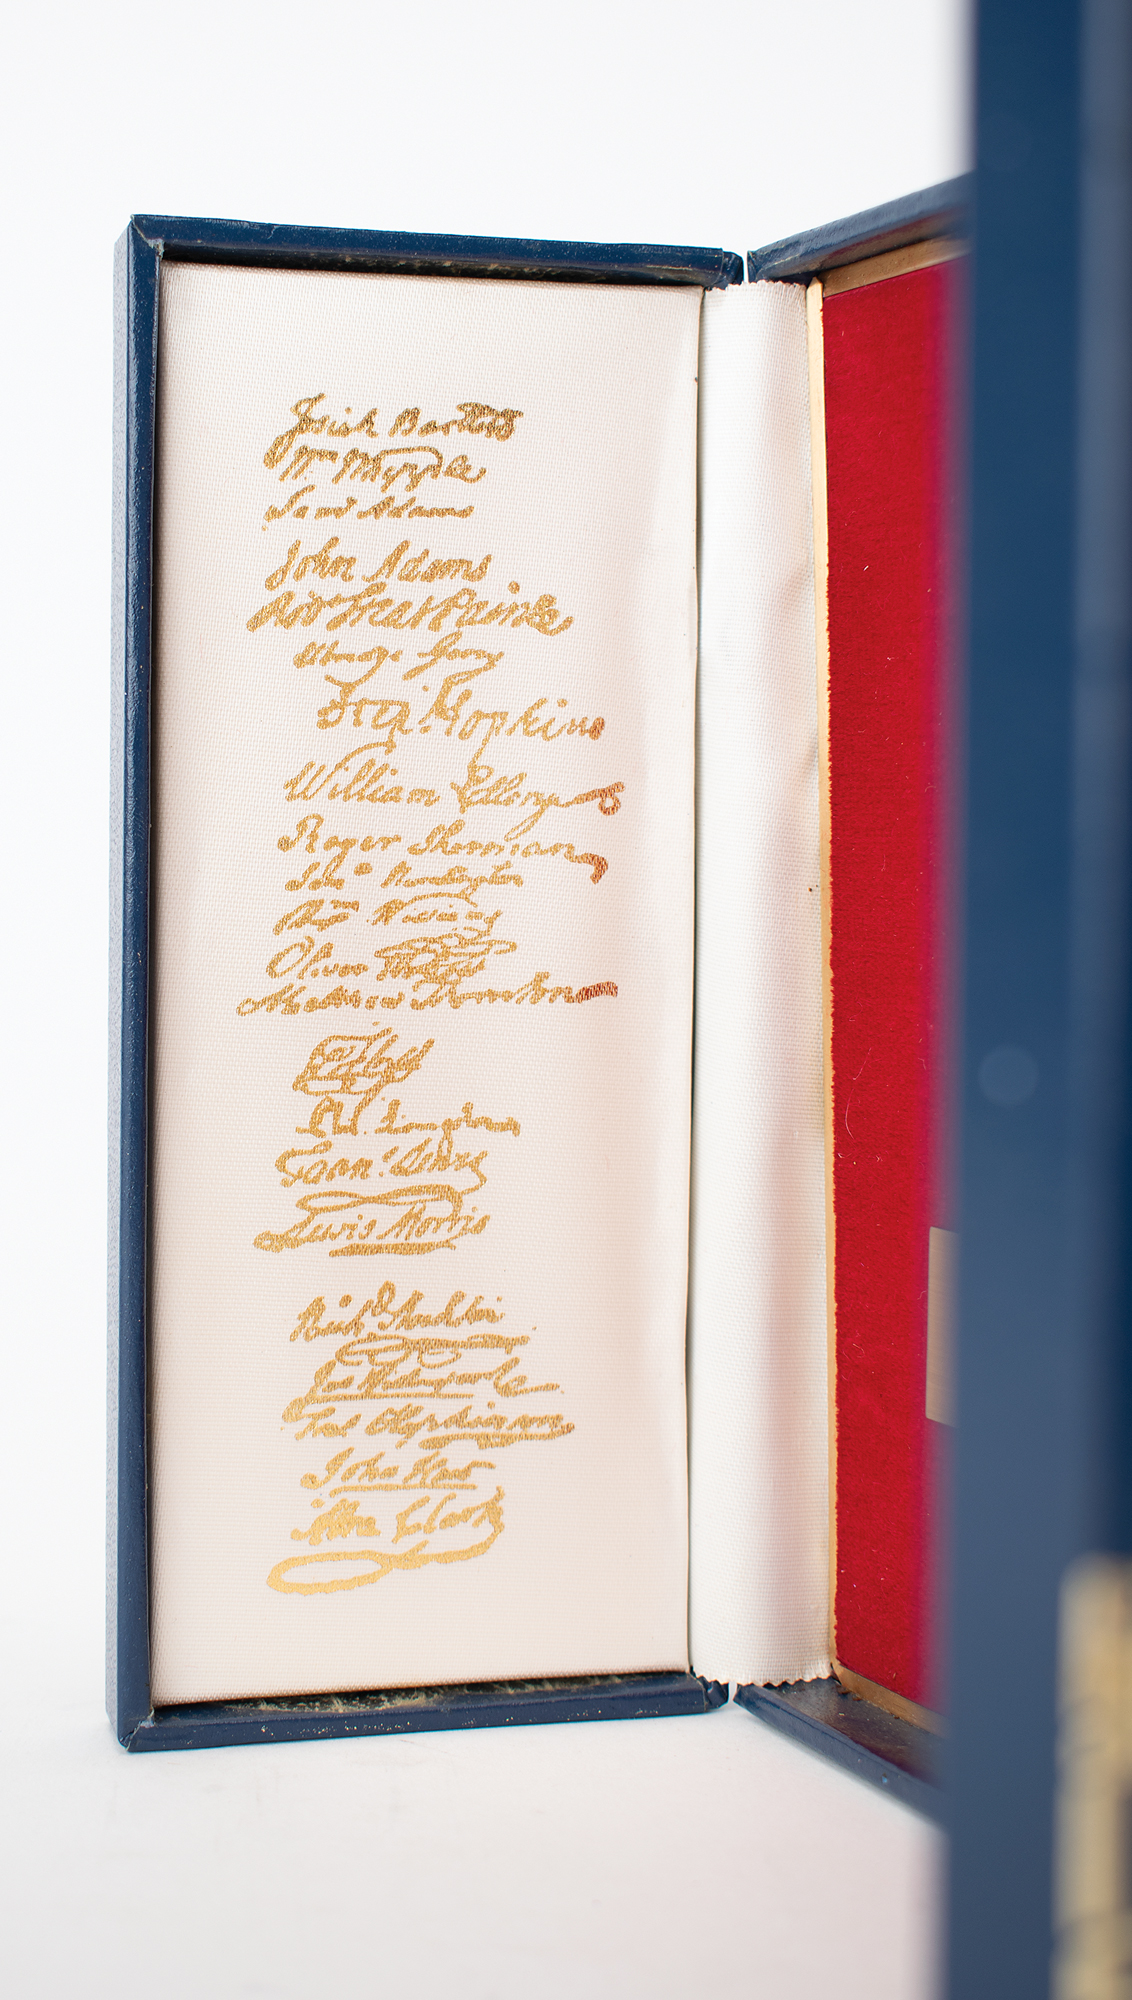 Josiah Bartlett
Wm Whipple
Saml Adams
John Adams
Robt Treat Paine
Elbridge Gerry
Step. Hopkins
William Ellery
Roger Sherman
Saml Huntington
Wm Williams
Oliver Wolcott
Matthew Thornton
Wm Floyd
Phil. Livingston
Frans. Lewis
Lewis Morris
Richd Stockton
Jno Witherspoon
Fras Hopkinson
John Hart
Abra Clark